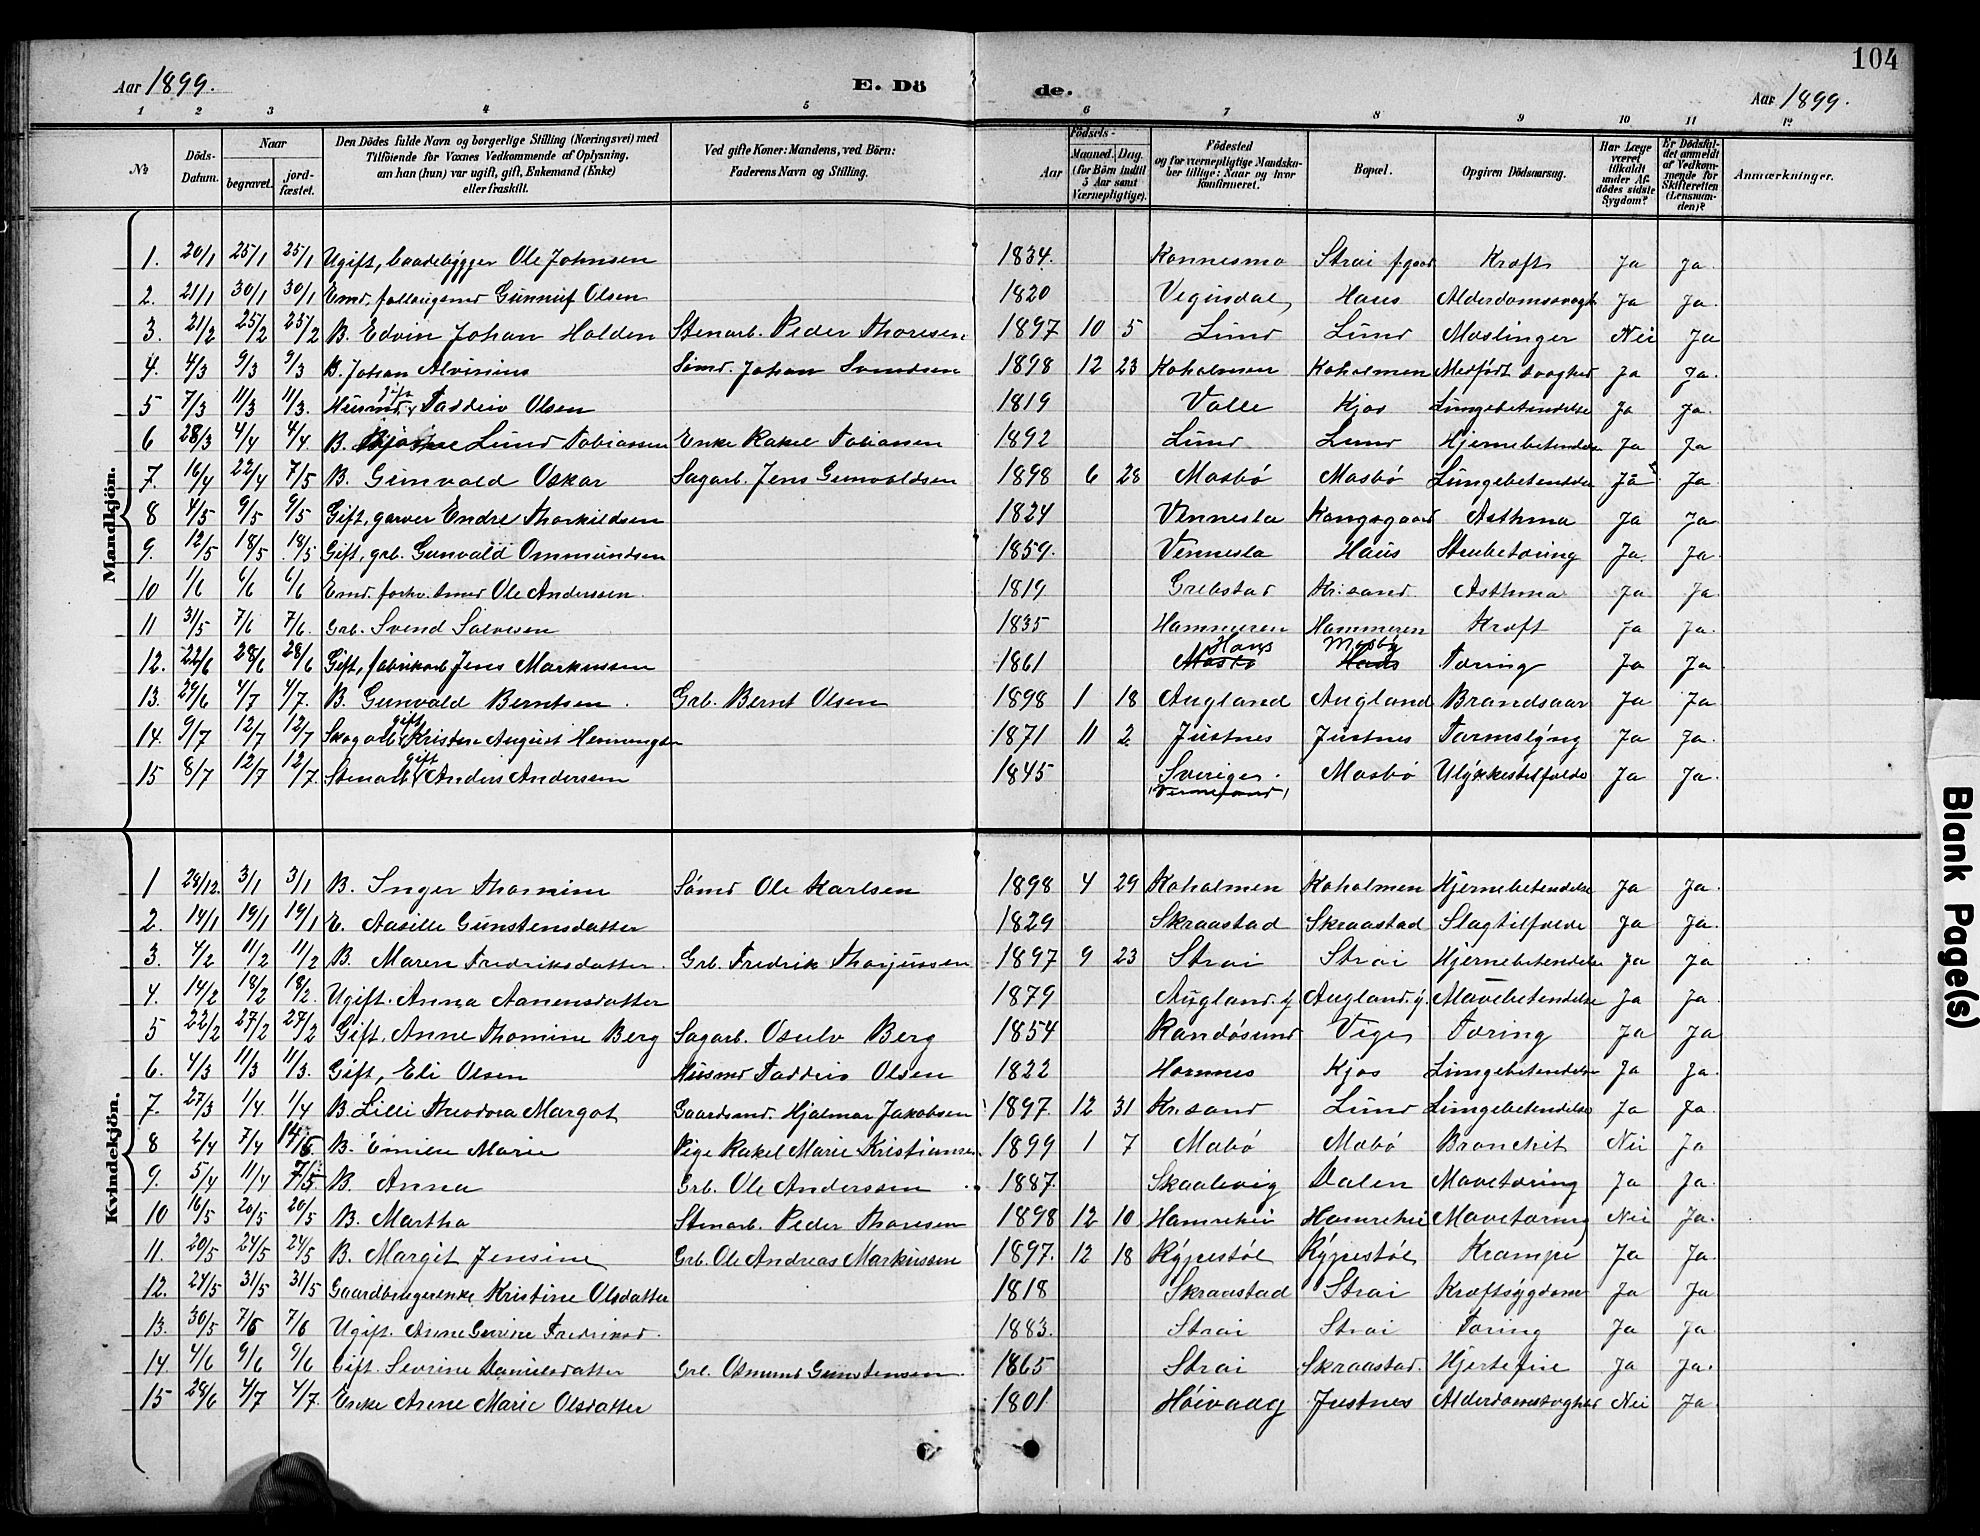 104
Aar 1899. E. Dö de. Aar 1899.
1 2 3 4 5 6 7 8 9 10 11 12
No Döds-Datum. Naar begravet. jord-fæstet. Den Dödes fulde Navn og borgerlige Stilling (Næringsvei) med Tilföiende for Voxnes Vedkommende af Oplysning, om han (hun) var ugift, gift, Enkemand (Enke) eller fraskilt. Ved gifte Koner: Mandens, ved Börn: Faderens Navn og Stilling. Aar Födsels- Maaned. Dag. (for Börn indtil 5 Aar samt Værnepligtige). Födested og for værnepligtige Mandskaber tillige: Naar og hvor konfirmeret. Bopæl. Opgiven Dödsaarsag. Har Læge været tilkaldt under Afdödes sidste Sygdom? Er Dödsfaldet anmeldt af Vedkommende for Skifteretten (Lensmanden)? Anmærkninger.
Mandkjön.
1. 20/1 25/1 25/1 Ugift, baadebygger Ole Johnsen 1834. Konnesmo Strai f. gaard Kræft Ja Ja.
2. 21/1 30/1 30/1 Emd. Gunnuf Olsen 1820 Vegusdal, Haus Alderdomssvagh Ja Ja.
3. 21/2 25/2 25/2 B. Edvin Johan Holden Stenarb. Peder Thoresen 1897 10 5 Lund Lund Mæslinger Nei Ja
4. 4/3 9/3 9/3 B. Johan Alvinius Sømd. Johan Svendsen 1898 12 23 Koholmen Koholmen Medfødt svaghed Ja Ja.
5 7/3 11/3 11/3. Husmd. gift Taddeis Olsen 1819 Valle Kjos Lungebetendelse Ja Ja.
6 28/3 4/4 4/4 B. Bjarne Lund Tobiassen Enke Rakel Tobiassen 1892 Lund Lund Hjernebetendelse Ja Ja
7. 16/4 22/4 7/5 B. Gunvald Oskar Sagarb. Jens Gunvaldsen 1898 6 28 Mosbö Mosbö Lungebetendelse Ja Ja
8 4/5 9/5 9/5 Gift, garver Endre Thorkildsen 1824 Vennesla Kongsgaard Asthma Ja Ja
9. 12/5 18/5 18/5 Gift, grb. Gunvald Ommundsen 1859. Vennesla Haus Strubetæring Ja. Ja.
10 1/6 6/6 6/6 Emd. forhv. smed Ole Anderssen. 1819 Grebstad Kr.sand. Asthma Ja Ja.
11 31/5 7/6 7/6. Grb. Svend Salvesen 1835 Hammeren Hammeren Kræft Ja Ja.
12. 22/6 28/6 28/6 Gift, fabrikarb Jens Markussen 1861 Mosbö Haus Haus Mosbö Tæring Ja Ja
13. 29/6 4/7 4/7. B. Gunvald Berntsen. Grb. Bernt Olsen 1898 1 18 Augland Augland Brandsaar Ja Ja
14. 9/7 12/7 12/7 Skogarb. gift Kristen August Henningsen 1871 11 2 Justnes Justnes Tarmslyng Ja Ja.
15 8/7 12/7 12/7. Stenarb. gift Anders Andersen 1845 Sverige. Mosbö Ulykkestilfælde Ja Ja.
Kvindekjön.
1 28/12. 3/1 3/1 B. Inger Thomine Sømd Ole Karlsen 1898 4 29 Koholmen Koholmen Hjernebetendelse Ja Ja.
2. 14/1 19/1 19/1 E. Aasille Gunstensdatter 1829 Skraastad Skraastad Slagtilfælde Ja Ja.
3. 4/2 11/2 11/2 B. Maren Fredriksdatter. Grb. Fredrik Thorjussen 1897 9 23 Strai Strai Hjernebetendelse Ja Ja
4. 14/2 18/2 18/2. Ugift. Anna Aanensdatter 1879 Augland. y Augland. y. Mavebetendelse Ja Ja.
5 22/2 27/2 27/2 Gift. Anne Thomine Berg Sagarb. Osulv Berg 1854 Randösund Vige Tæring Ja Ja
6. 4/3 11/3 11/3. Gift, Eli Olsen Husmd Taddeis Olsen 1822 Homnes Kjos Lungebetendelse Ja Ja
7. 27/3 1/4 1/4 B. Lilli Theodora Margot Gaardsmd. Hjalmar Jakobsen 1897. 12 31 Kr.sand Lund Lungebetendelse Ja Ja.
8 2/4 7/4 14/5. B. Emilie Marie Pige Rakel Marie Kristiansen 1899 1 7 Mobö Mobö Bronchit Nei Ja
9. 5/4 11/4 7/5 B. Anna Grb. Ole Anderssen 1887. Skaalevig Dalen Mavetæring Ja Ja.
10 16/5 20/5 20/5 B. Martha Stenarb. Peder Thoresen 1898 12 10 Hamrehei Hamrehei Mavetæring Nei Ja.
11. 20/5 24/5 24/5 B. Margit Jensine Grb. Ole Andreas Markussen 1897. 12 18 Rypestöl Rypestöl Krampe Ja Ja.
12. 24/5 31/5 31/5 Gaardbrugerenke Kristine Olsdatter 1818 Skraastad Strai Kræftsygdom Ja Ja
13. 30/5 7/6 7/6 Ugift. Anne Gurine Fredriksd. 1883. Strai Strai Tæring Ja Ja.
14. 4/6 9/6 9/6 Gift. Sevrine Danielsdatter Grb. Osmund Gunstensen. 1865 Strai Skraastad. Hjertefeil Ja Ja.
15 28/6 4/7 4/7. Enke Anne Marie Olsdatter 1801. Höivaag Justnes Alderdomssvaghed Nei Ja.
Blank Page(s)